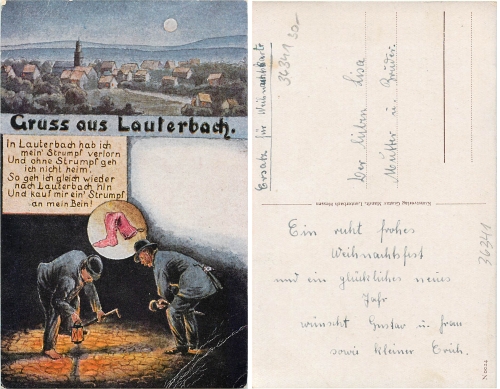 Gruss aus Lauterbach.
In Lauterbach hab ich
mein' Strumpf verlorn
Und ohne Strumpf geh
ich nicht heim',
So geh ich gleich wieder
nach Lauterbach hin
Und kauf mir ein' Strumpf
an mein Bein!
Ersatz für Weihnachtskarte
36341 30-
Der lieben Lisa
Mutter u. Bruder.
Kunstverlag Gustav Mandt, Lauterbach-Hessen
Ein recht frohes
Weihnachtsfest
und ein glückliches neues
Jahr
wünscht Gustav u. Frau
sowie kleiner Erich.
36341
N 0024